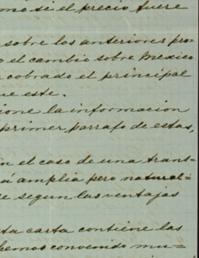 omo si el precio fuere
sobre los anteriores pro
o el cambio sobre Mexico
cobrado el principal
ue este.
ione la informacion
primer parrafo de estas,
n el caso de una trans-
á amplia pero natural-
e segun las ventajas
ta carta contiene las
hemos convenido mu-